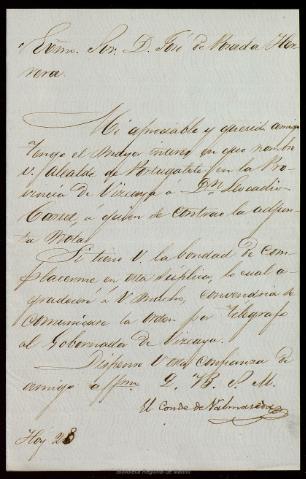 Excmo. Sor. D. José de Posada Her-
rera.
Mi apreciable y querido amigo
Tengo el mayor interes en que nombre
V. Alcalde de Portugalete en la Pro
vincia de Vizcaya á Dn Leocadio
á quien se contrae la adjun
ta Nota.
Si tiene V. la bondad de com
placerme en esta súplica, lo cual a
gradeceré á V. mucho, convendria se
comunicase la orden por Telégrafo
al Gobernador de Vizcaya.
Dispense V esta confianza de
amigo affmo. Q. B. S. M.
El Conde de Valmaseda
Hoy 28